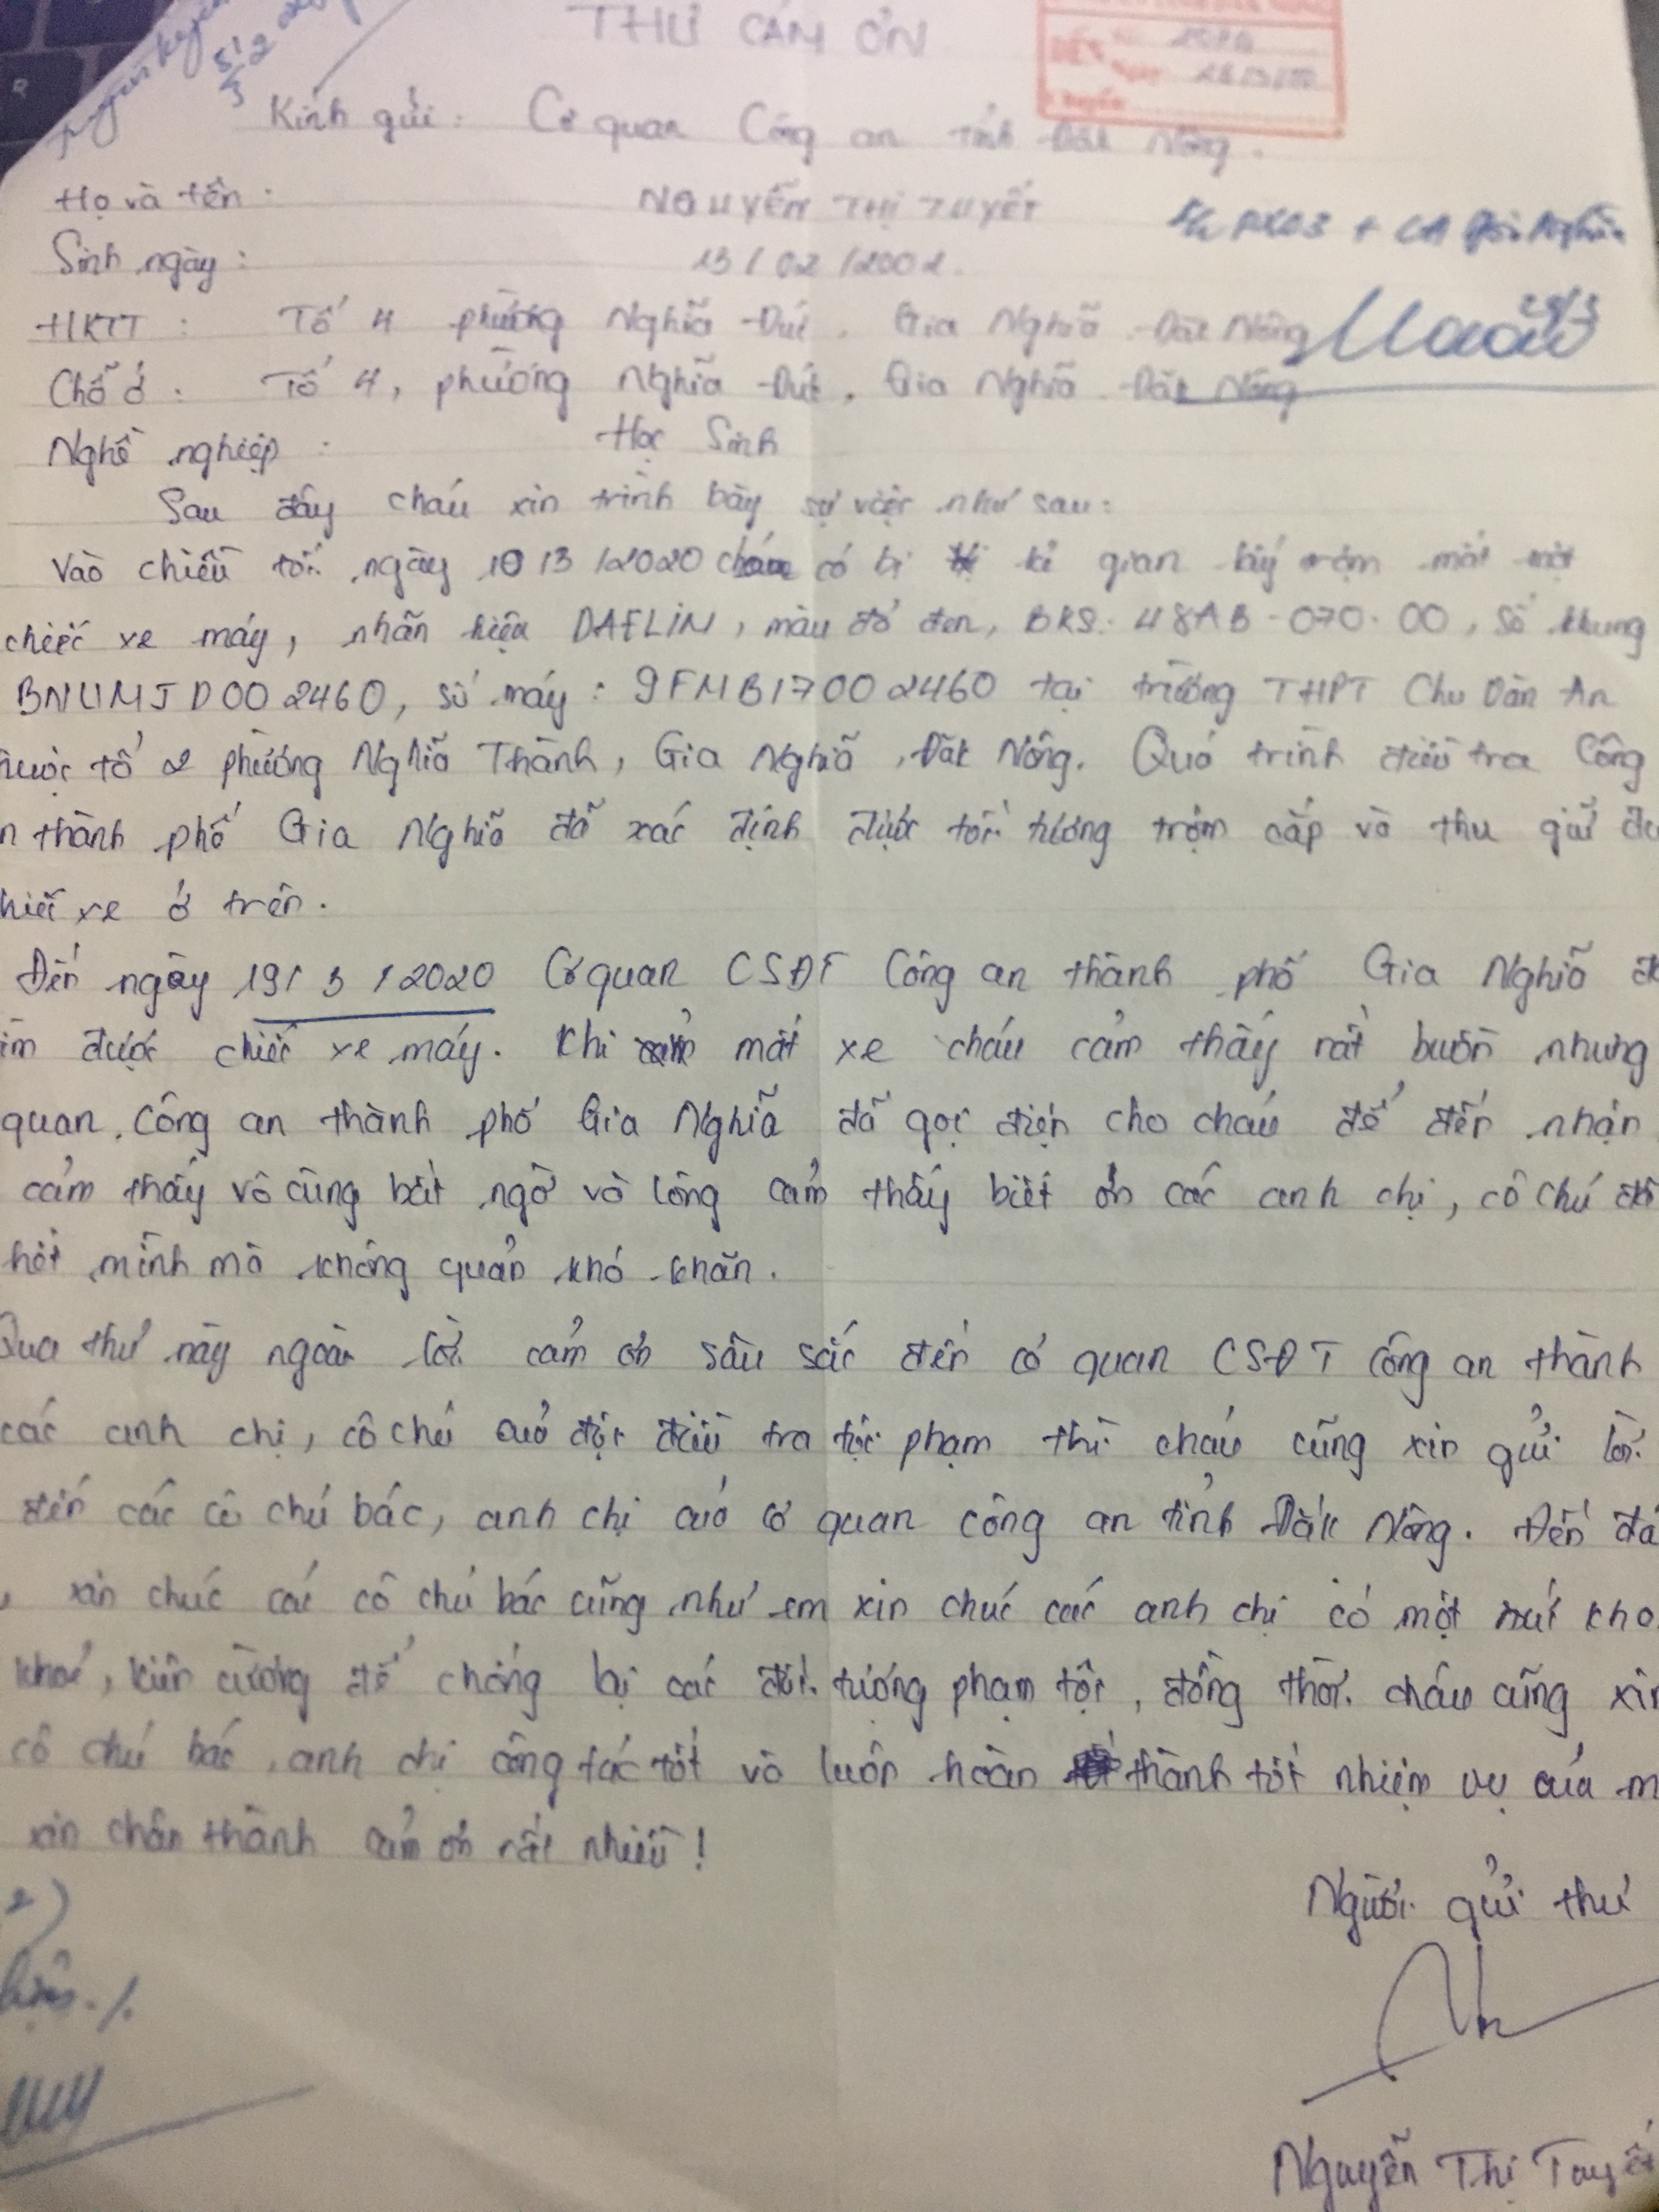 THƯ CẢM ƠN
Kính gửi: Cơ quan Công an tỉnh Đăk Nông.
ĐẾN
Họ và tên: NGUYỄN THỊ TUYẾT
Sinh ngày: 13/02/2002.
HKTT: Tổ 4 phường Nghĩa Đức. Gia Nghĩa. Đăk Nông
Chỗ ở: Tổ 4, phường Nghĩa Đức, Gia Nghĩa. Đăk Nông
Nghề nghiệp: Học Sinh
Sau đây cháu xin trình bày sự việc như sau:
Vào chiều tối ngày 10/3/2020 cháu có bị kẻ gian lấy trộm mất một
chiếc xe máy, nhãn hiệu DAELIN, màu đỏ đen, BKS: 48AB-070.00, số khung
BNUMJD002460, số máy: 9FMB17002460 tại trường THPT Chu Văn An
tổ 2 phường Nghĩa Thành, Gia Nghĩa, Đăk Nông. Quá trình điều tra Công
thành phố Gia Nghĩa đã xác định được tối tượng trộm cắp và thu giữ
xe ở trên.
Đến ngày 19/3/2020 Cơ quan CSĐT Công an thành phố Gia Nghĩa
được chiếc xe máy. Khi mất xe cháu cảm thấy rất buồn nhưng
quan Công an thành phố Gia Nghĩa đã gọi điện cho cháu để đến nhận
cảm thấy vô cùng bất ngờ và lòng cảm thấy biết ơn các anh chị, cô chú đã
hết mình mà không quản khó khăn.
Qua thư này ngoài lời cảm ơn sâu sắc đến cơ quan CSĐT Công an thành
các anh chị, cô chú của đội điều tra tội phạm thì cháu cũng xin gửi lời
đến các cô chú bác, anh chị của cơ quan công an tỉnh Đăk Nông. Đến
xin chúc các cô chú bác cũng như em xin chúc các anh chị có một
khoẻ, kiên cường để chống lại các đối tượng phạm tội, đồng thời cháu cũng xin
cô chú bác, anh chị công tác tốt và luôn hoàn thành tốt nhiệm vụ của
xin chân thành cảm ơn rất nhiều!
Người gửi thư
Nguyễn Thị Tuyết